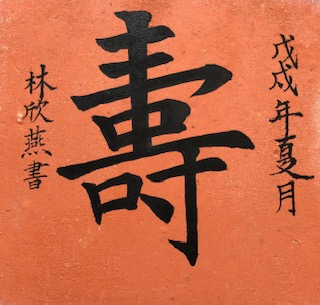 戊戌年夏月
壽
林欣燕書